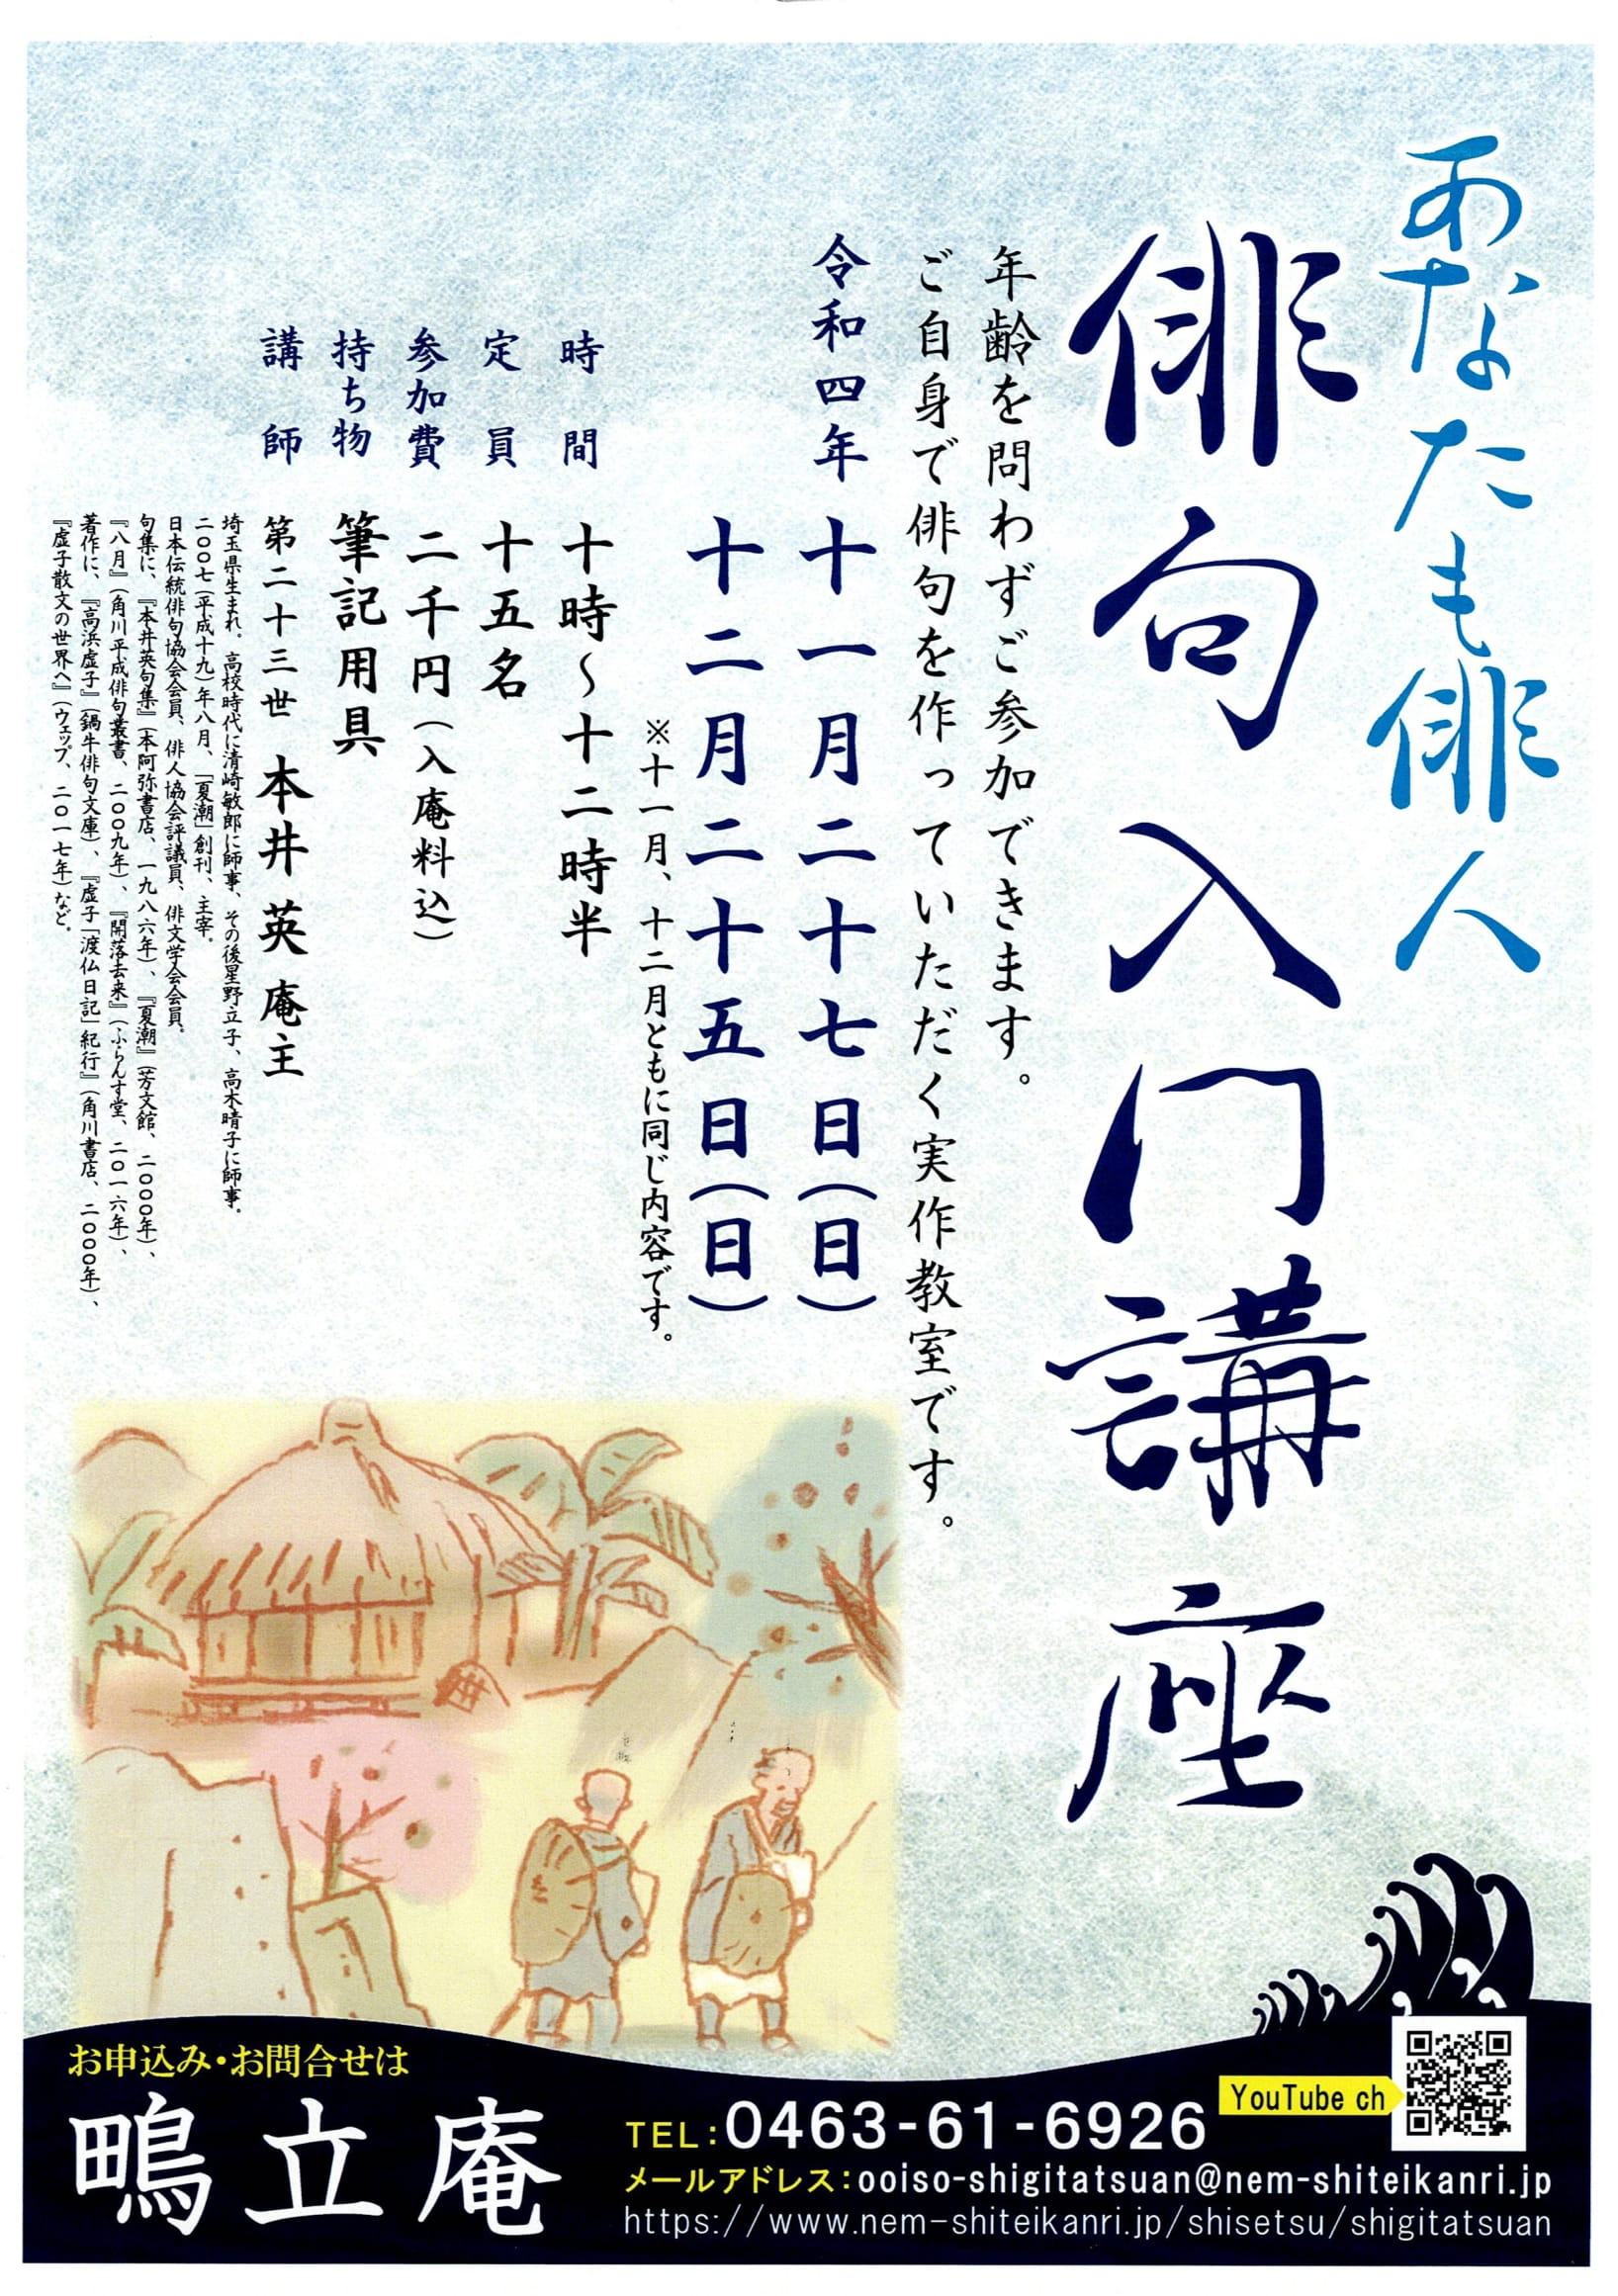 あなたも俳人
俳句入門講座
年齢を問わずご参加できます。
ご自身で俳句を作っていただく実作教室です。
令和四年 十一月二十七日(日)
十二月二十五日(日)
※十一月、十二月ともに同じ内容です。
時間 十時～十二時半
定員 十五名
参加費 二千円(入庵料込)
持ち物 筆記用具
講師 第二十三世 本井 英 庵主
埼玉県生まれ。高校時代に清崎敏郎に師事、その後星野立子、高木晴子に師事。
二〇〇七(平成十九)年八月、「夏潮」創刊、主宰。
日本伝統俳句協会会員、俳人協会評議員、俳文学会会員。
句集に、『本井英句集』(本阿弥書店、一九八六年)、『夏潮』(芳文館、二〇〇〇年)、
『八月』(角川平成俳句叢書、二〇〇九年)、『開落去来』(ふらんす堂、二〇一六年)、
著作に、『高浜虚子』(蝸牛俳句文庫)、『虚子「渡仏日記」紀行』(角川書店、二〇〇〇年)、
『虚子散文の世界へ』(ウェップ、二〇一七年)など。
お申込み・お問合せは
鴫立庵
TEL:0463-61-6926
YouTube ch
メールアドレス:ooiso-shigitatsuan@nem-shiteikanri.jp
https://www.nem-shiteikanri.jp/shisetsu/shigitatsuan